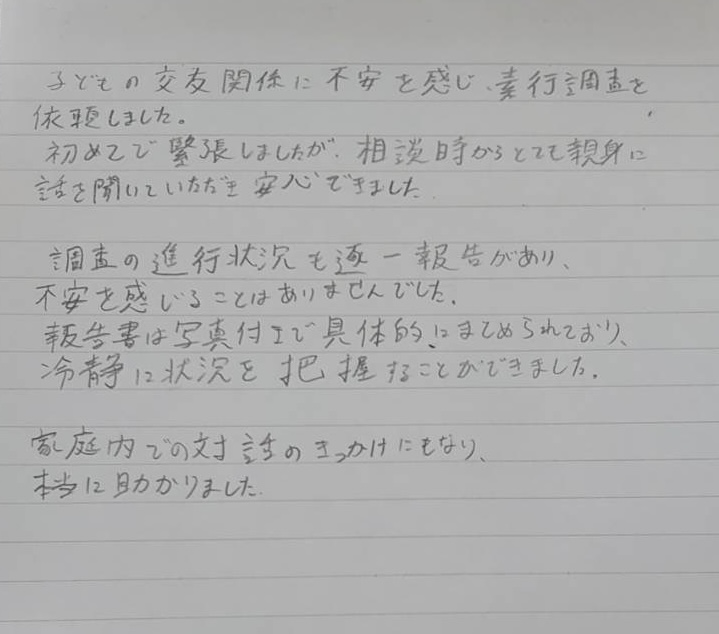 子どもの交友関係に不安を感じ、素行調査を
依頼しました。
初めてで緊張しましたが、相談時からとても親身に
話を聞いていただき安心できました
調査の進行状況も逐一報告があり、
不安を感じることはありませんでした。
報告書は写真付きで具体的にまとめられており、
冷静に状況を把握することができました。
家庭内での対話のきっかけにもなり、
本当に助かりました.